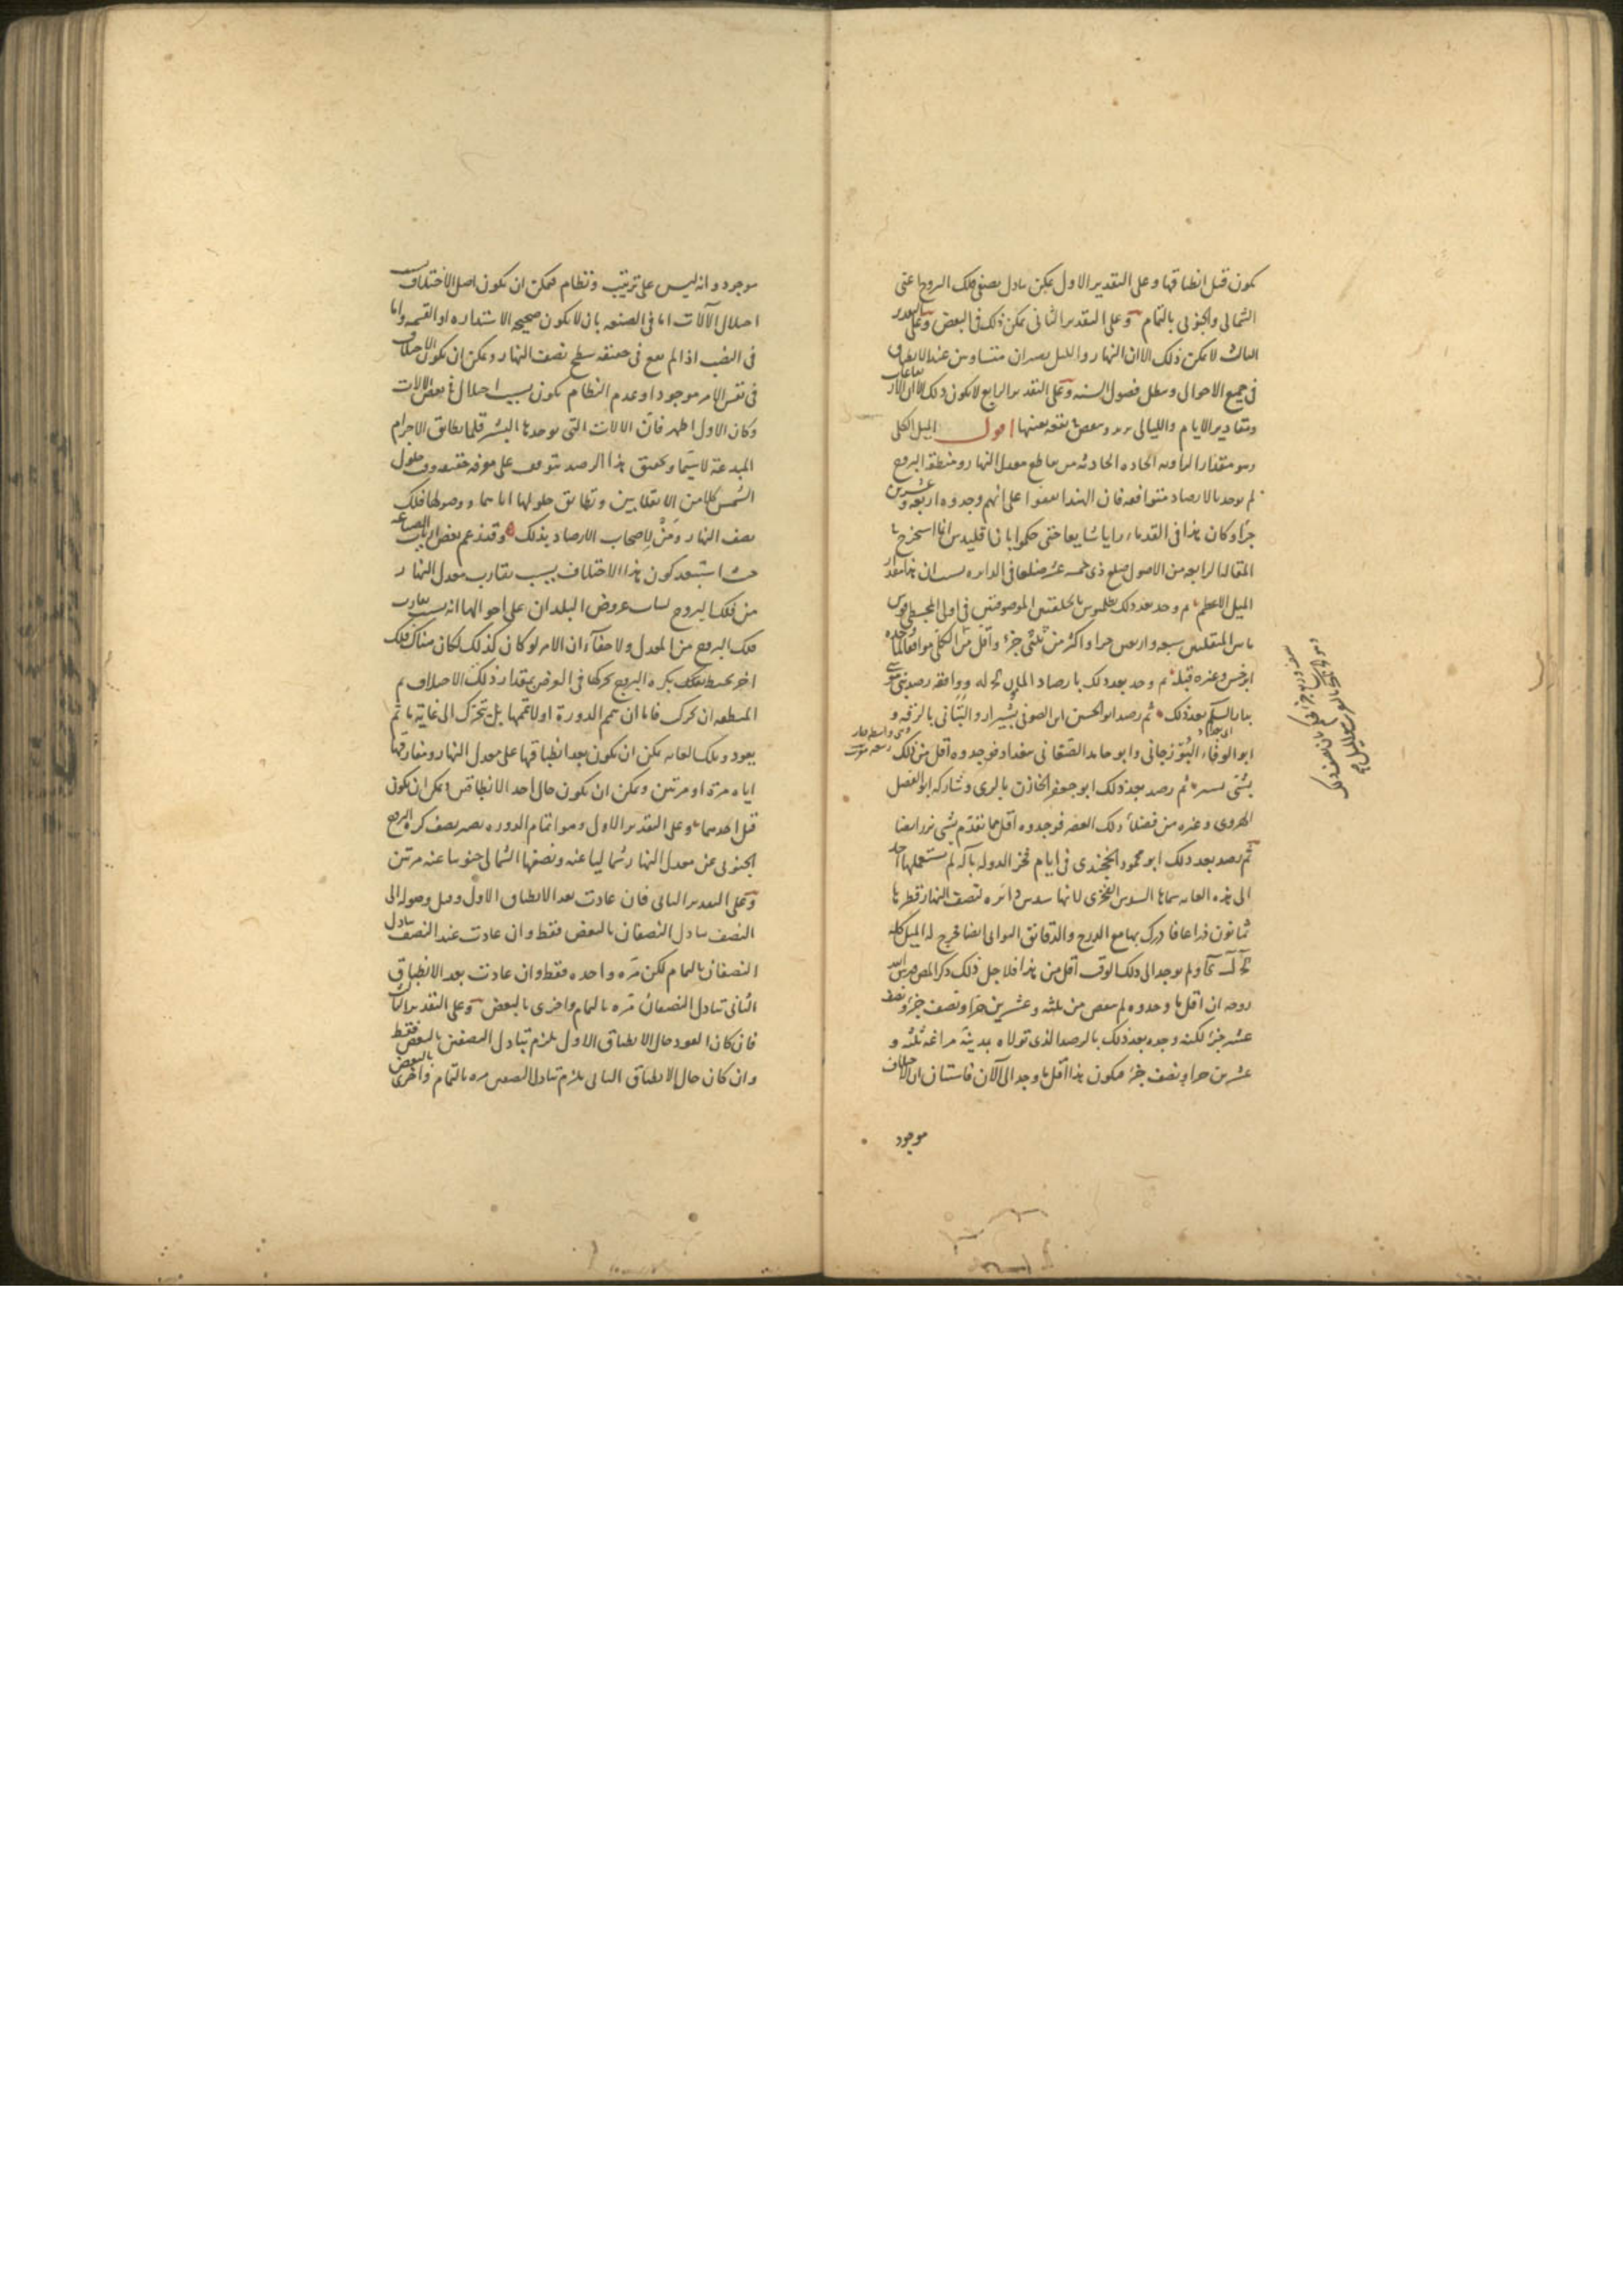 كون قبل انطباقها وعلى التقدير الاول يمكن تبادل نصفى فلك البروج اعنى
الشمالى والجنوبى بالتمام وعلى التقدير الثانى يمكن ذلك فى البعض وعلى التقدير
الثالث لا يمكن ذلك الا ان النهار والليل يصيران متساويين عند الانطباق
فى جميع الاحوال ويبطل فصول السنة وعلى التقدير الرابع لا يكون ذلك الا ان الار
ومقادير الايام والليالى بعينها اقول الميل الكلى
وهو مقدار الزاوية الحادة الحادثة من تقاطع معدل النهار ومنطقة البروج
لم يوجد بالارصاد متوافقة فان الهند اتفقوا على انهم وجدوه اربعة وعشرين
جزأ وكان هذا فى القدماء رايا شايعا حتى حكموا بان اقليدس انما استخرج
المقالة الرابعة من الاصول ضلع ذى خمسة عشر ضلعا فى الدائرة بسبب ان هذا مقدار
الميل الاعظم ثم وجد بعد ذلك بطلميوس بالحلقتين الموصوفتين فى اولى المجسطى قوس
ما بين المنقلبين سبعة واربعين جزأ واكثر من ثلثى جزء واقل من موافقا لما وجده
ابرخس وغيره قبله ثم وجد بعد ذلك بارصاد المامون كج له ووافقه رصد بنى موسى
بعد ذلك ثم رصد ابو الحسين ابن الصوفى بشيراز والبتانى بالرقة و
ابو الوفاء البوزجانى وابو حامد الصغانى ببغداد فوجدوه اقل من ذلك
بشئ يسير ثم رصد بعد ذلك ابو جعفر الخازن بالرى وشاركه ابو الفضل
الهروى وغيره من فضلاء ذلك العصر فوجدوه اقل مما تقدم بشئ نزر ايضا
ثم رصد بعد ذلك ابو محمود الخجندى فى ايام فخر الدولة بآلة لم يستعملها احد
الى هذه الغاية سماها السدس الفخرى لانها سدس دائرة لنصف النهار قطرها
ثمانون ذراعا فادرك بها مع الدرج والدقائق الثوانى ايضا فخرج له الميل كله
كج لب كا ولم يوجد الى ذلك الوقت اقل من هذا فلاجل ذلك ذكر المص قدس الله
روحه ان اقل ما وجدوه لم ينقص من ثلثة وعشرين جزأ ونصف جزء ونصف
عشر جزء لكنه وجده بعد ذلك بالرصد الذى تولاه بمدينة مراغة ثلثة و
عشرين جزأ ونصف جزء فيكون هذا اقل ما وجد الى الآن فاستبان ان الاختلاف
موجود
موجود وانه ليس على ترتيب ونظام فيمكن ان يكون اصل الاختلاف بسبب
اختلال الآلات اما فى الصنعة بان لا يكون صحيحة الاستدارة او القسمة واما
فى النصب اذا لم يقع فى حقيقة سطح نصف النهار ويمكن ان يكون الاختلاف
فى نفس الامر موجودا وعدم النظام يكون بسبب اختلال فى بعض الالات
وكان الاول اظهر فان الالات التى يوجدها البشر قلما يطابق الاجرام
المبدعة لا سيما وتحقيق هذا الرصد يتوقف على معرفة حقيقة وقت حلول
الشمس كلا من الانقلابين وتطابق حلولها اياهما ووصولها فلك
نصف النهار ومن لاصحاب الارصاد بذلك وقد زعم بعض ارباب الصناعة
حيث استبعد كون هذا الاختلاف بسبب تقارب معدل النهار
من فلك البروج لثبات عروض البلدان على احوالها انه بسبب تقارب
فلك البروج من المعدل ولا خفاء ان الامر لو كان كذلك لكان هناك فلك
اخر يحيط بفلك البروج يحركها فى العرض بمقدار ذلك الاختلاف ثم
المنطقة ان تحرك فاما ان تتم الدورة او لا تتمها بل يتحرك الى غاية ما ثم
يعود وتلك الغاية يمكن ان يكون بعد انطباقها على معدل النهار ومفارقتها
اياه مرة او مرتين ويمكن ان يكون حال احد الانطباقين ويمكن ان يكون
قبل احدهما وعلى التقدير الاول وهو اتمام الدورة يصير نصف كرة البروج
الجنوبى عن معدل النهار شماليا عنه ونصفها الشمالى جنوبيا عنه مرتين
وعلى التقدير الثانى فان عادت بعد الانطباق الاول وقبل وصوله الى
النصف تبادل النصفان بالبعض فقط وان عادت عند النصف تبادل
النصفان بالتمام لكن مرة واحدة فقط وان عادت بعد الانطباق
الثانى تبادل النصفان مرة بالتمام واخرى بالبعض وعلى التقدير الثالث
فان كان العود حال الانطباق الاول يلزم تبادل النصفين بالبعض فقط
وان كان حال الانطباق الثانى يلزم تبادل النصفين مرة بالتمام واخرى بالبعض